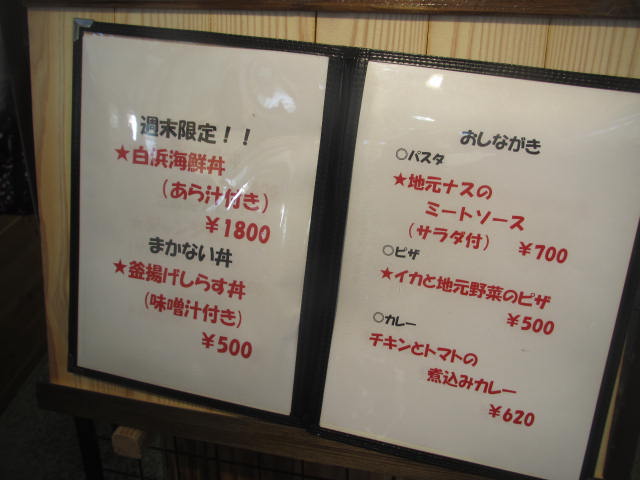 週末限定！！
★白浜海鮮丼
（あら汁付き）
￥1800
まかない丼
★釜揚げしらす丼
（味噌汁付き）
￥500
おしながき
○パスタ
★地元ナスの
ミートソース
（サラダ付）　￥700
○ピザ
★イカと地元野菜のピザ
￥500
○カレー
チキンとトマトの
煮込みカレー
￥620